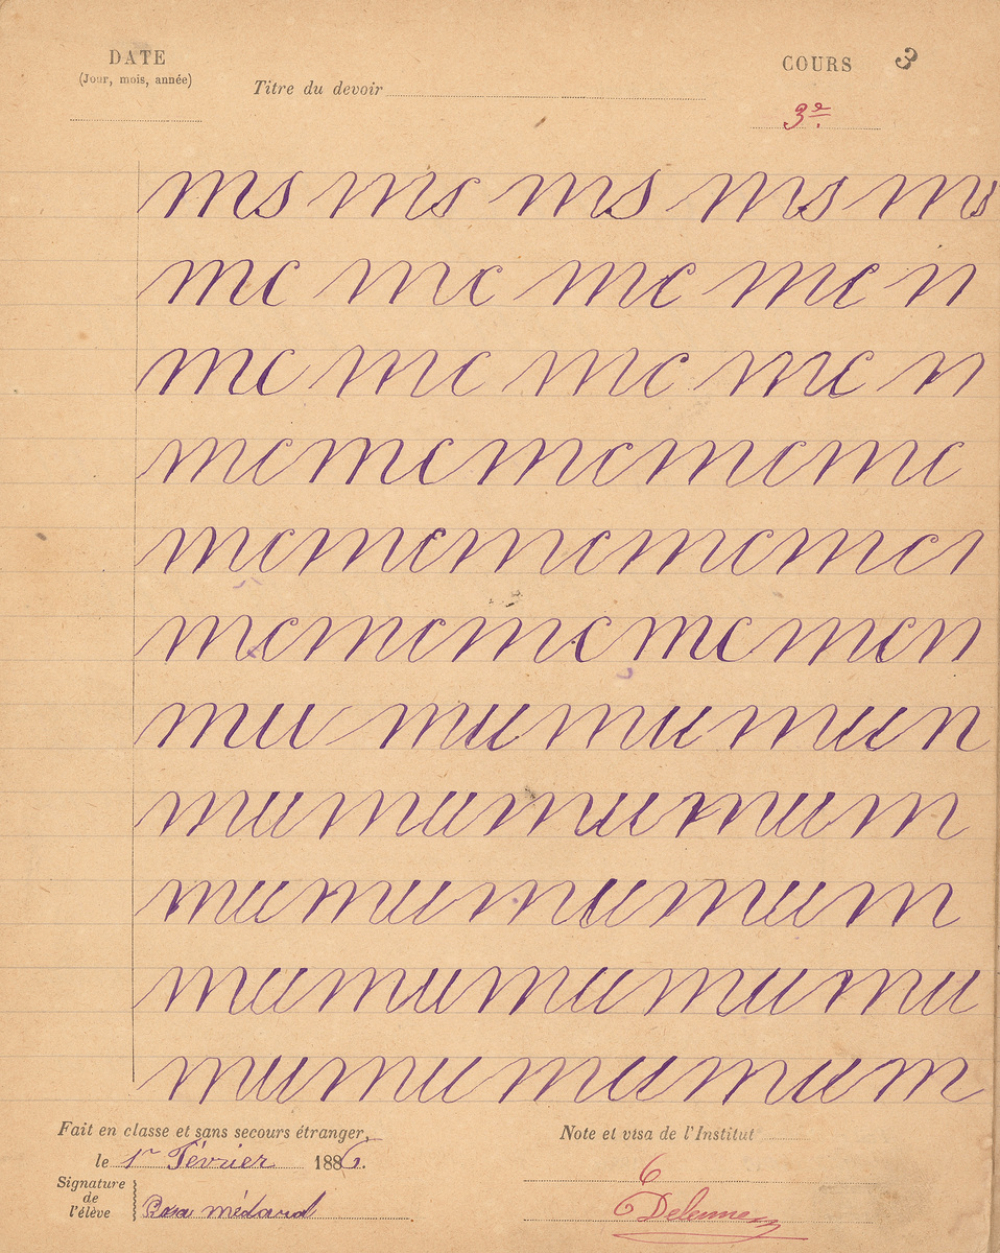 DATE
(Jour, mois, année)
Titre du devoir
COURS 3
3e
ms ms ms ms ms
mc mc mc mc n
mc mc mc mc n
mcmcmcmcmc
mcmcmcmcmcı
mcmcmcmcmcn
mu mumumun
mumumumum
mumumumum
mumumumumu
mumumumum
Fait en classe et sans secours étranger,
le 1er Février 1886.
Signature de l'élève
médard
Note et visa de l'Institut
6